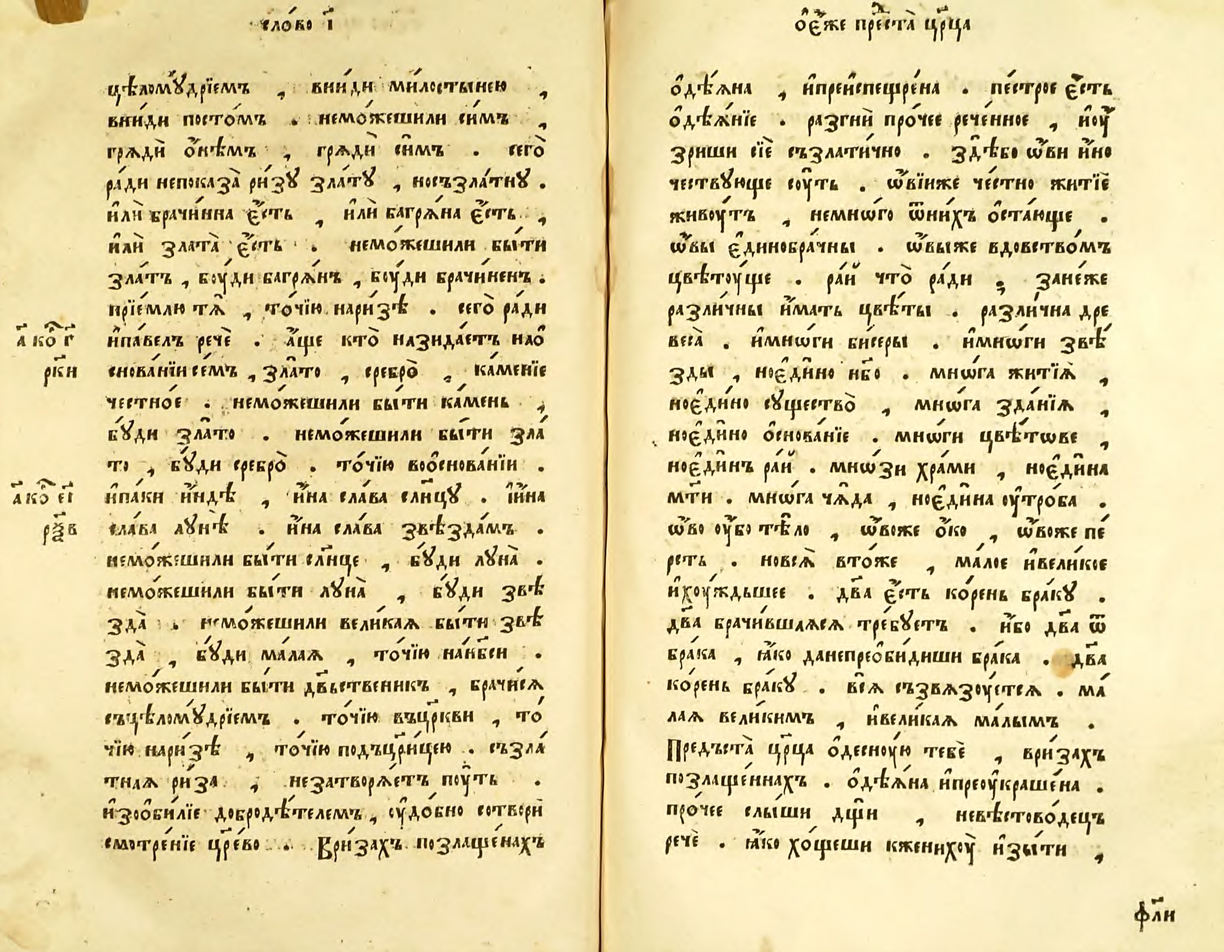 сло́во і҃
цѣлому́дрїемъ , вни́иди ми́лостынею ,
вни́иди посто́мъ . немо́жешили си́мъ ,
грѧдѝ ѻ҆нѣ́мъ , грѧдѝ си́мъ . сегѡ̀
ра́ди непоказа̀ ри́зꙋ зла́тꙋ , носъзла́тнꙋ .
и҆лѝ брачи́нна є҆́сть , и҆лѝ багрѧ́на є҆́сть ,
и҆лѝ злата̀ є҆́сть . немо́жешили бы́ти
зла́тъ , бꙋ́ди багрѧ́нъ , бꙋ́ди брачи́ненъ .
прїе́млю тѧ̀ , то́чїю нари́зѣ . сегѡ̀ ра́ди
и҆па́велъ речѐ . а҆́ще кто̀ назида́етъ нао҆
снова́нїи се́мъ , зла́то , сребро̀ , ка́менїе
честно́е . немо́жешили бы́ти ка́мень ,
бꙋ́ди зла́то . немо́жешили бы́ти зла́
то , бꙋ́ди сребро̀ . то́чїю воо҆снова́нїи .
и҆па́ки и҆́ндѣ , и҆́на сла́ва сл҃нцꙋ . и҆и҆́на
сла́ва лꙋнѣ̀ . и҆́на сла́ва звѣзда́мъ .
немо́жешили бы́ти сл҃нце , бꙋ́ди лꙋна̀ .
немо́жешили бы́ти лꙋна̀ , бꙋ́ди звѣ
зда̀ . немо́жешили вели́каѧ бы́ти звѣ
зда̀ , бꙋ́ди ма́лаѧ , то́чїю нан҃бси .
немо́жешили бы́ти дв҃ьственикъ , брачи́сѧ
съцѣлому́дрїемъ . то́чїю въцр҃кви , то́
чїю нари́зѣ , то́чїю подъцр҃и́цею . съзла́
тнаѧ ри́за , незатворѧ́етъ пꙋ́ть .
и҆зоо҆би́лїе добродѣ́телемъ , оу҆до́бно сотворѝ
смотре́нїе цр҃е́во . Ври́захъ позлаще́нахъ
а҃ ко҃ г҃
рки
а҃ ко҃ еі҃
рз҃в
ѻ҆є҆́же предста̀ цр҃ца
ѻ҆дѣ́ѧна , и҆преи҆спещре́на . пе́строе є҆́сть
ѻ҆дѣѧ́нїе . разгнѝ про́чее рече́нное , и҆оу҆
зри́ши сїѐ съзлати́чно . здѣ́бо ѡ҆́ви и҆́но
че́ствующе сꙋ́ть . ѡ҆ви́иже че́стно житїѐ
живꙋ́тъ , немнѡ́го ѿни́хъ ѻ҆ста́юще .
ѡ҆́вы є҆динобра́чны . ѡ҆́выже вдовство́мъ
цвѣтꙋ́ще . ра́й что̀ ра́ди ; зане́же
разли́чны и҆́мать цвѣ́ты . разли́чна дре
веса̀ . и҆мнѡ́ги би́серы . и҆мнѡ́ги звѣ́
зды , ное҆ди́но н҃бо . мнѡ́га житїѧ̀ ,
ное҆ди́но существо̀ , мнѡ́га зда́нїѧ ,
ное҆ди́но ѻ҆снова́нїе . мнѡ́ги цвѣ́тѡве ,
ное҆ди́нъ ра́й . мнѡ́зи хра́ми , ное҆ди́на
мт҃и . мнѡ́га чѧ́да , ное҆ди́на оу҆тро́ба .
ѡ҆́во оу҆́бо тѣ́ло , ѡ҆́воже ѻ҆́ко , ѡ҆́воже пе́
рстъ . новсѧ̀ вто́же , ма́лое и҆вели́кое
и҆хꙋ́ждьшее . дв҃а є҆́сть ко́рень бра́кꙋ .
дв҃а брачи́вшаѧсѧ тре́бꙋетъ . и҆́бо дв҃а ѿ
бра́ка , ꙗ҆́ко данепрео҆би́диши бра́ка . дв҃а
ко́рень бра́кꙋ . всѧ̀ съзвѧ́зꙋетсѧ . ма́
лаѧ вели́кимъ , и҆вели́каѧ ма́лымъ .
Предъста̀ цр҃ца ѻ҆деснꙋ́ю тебѐ , ври́захъ
позлаще́ннахъ . ѻ҆дѣ́ѧна и҆преоу҆кра́шена .
про́чее слы́ши дщ҃и , невѣстово́децъ
речѐ . ꙗ҆́ко хо́щеши кженихꙋ̀ и҆зы́ти ,
фл҃и